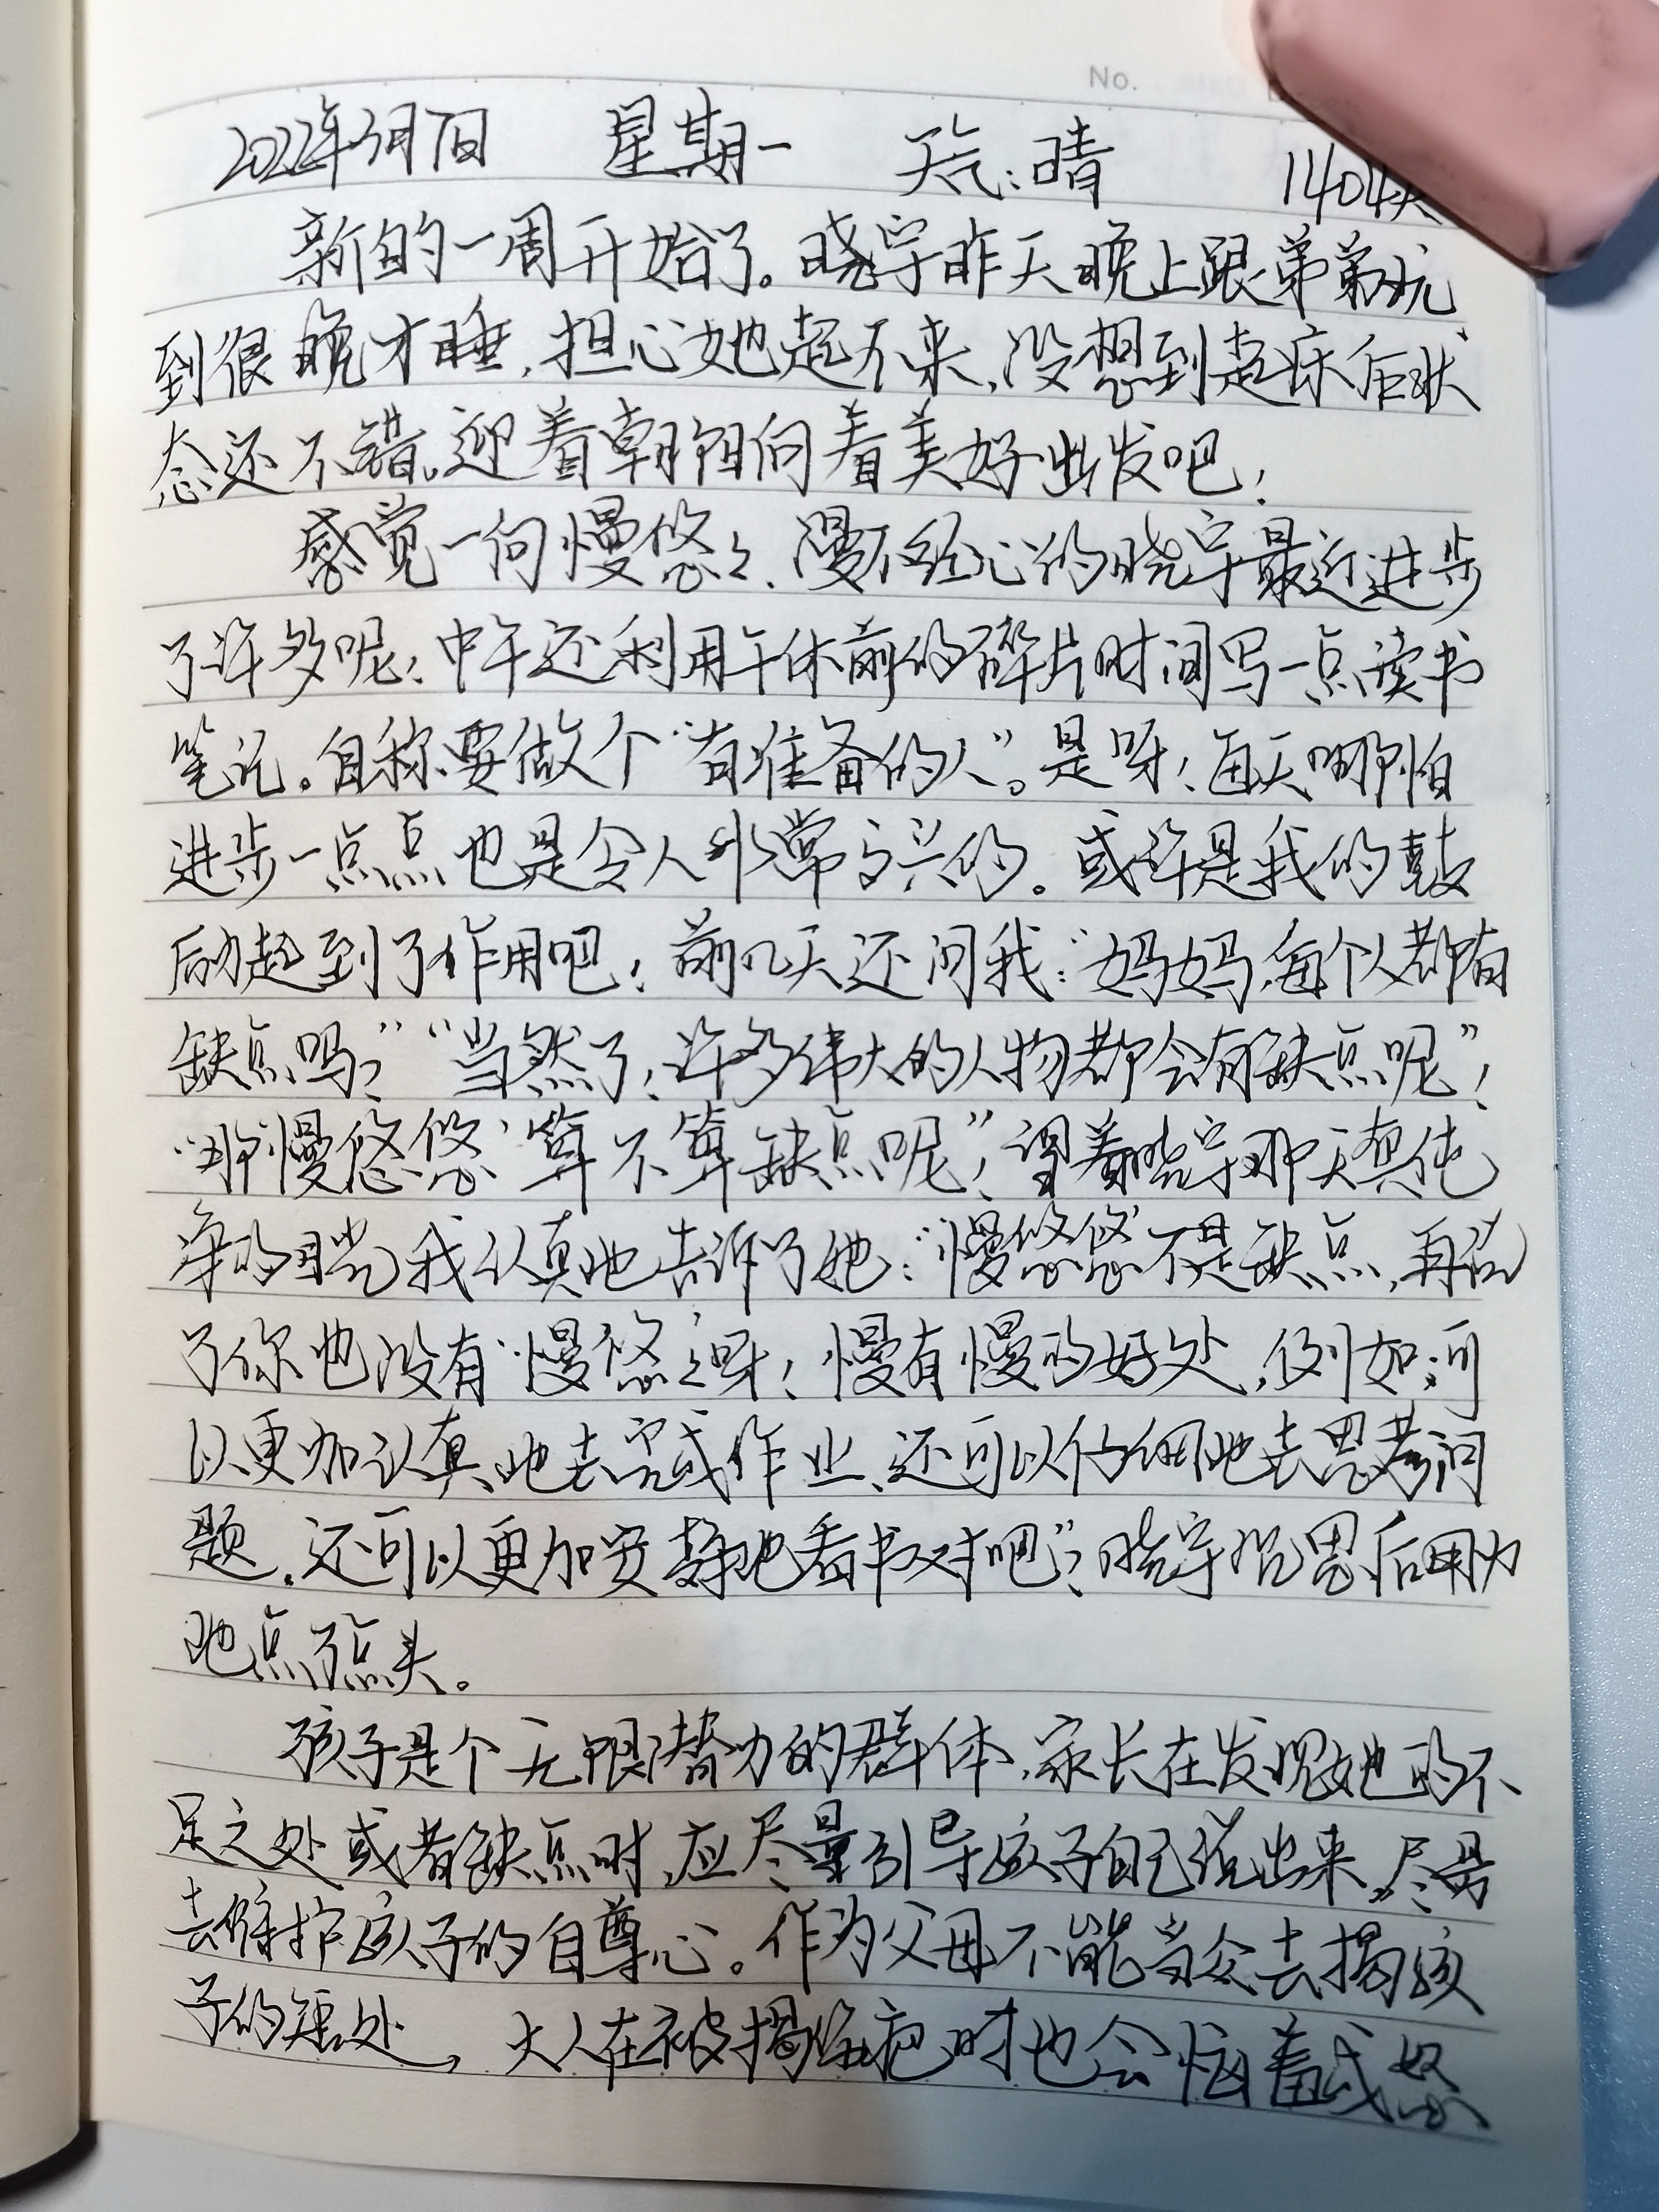 No.
2022年3月7日 星期一 天气:晴 1404天
新的一周开始了。晓宇昨天晚上跟弟弟玩
到很晚才睡,担心她起不来,没想到起床后状
态还不错,迎着朝阳向着美好出发吧!
感觉一向慢悠々、漫不经心的晓宇最近进步
了许多呢!中午还利用午休前的碎片时间写一点读书
笔记。自称要做个“有准备的人”。是呀!每天哪怕
进步一点点也是令人非常高兴的。或许是我的鼓
励起到了作用吧!前几天还问我:“妈妈,每个人都有
缺点吗?”“当然了!许多伟大的人物都会有缺点呢”!
“那‘慢悠悠’算不算缺点呢”?望着晓宇那天真纯
净的目光我认真地告诉了她:“‘慢悠悠’不是缺点,再说
了你也没有‘慢悠々’呀!慢有慢的好处,例如:可
以更加认真地去完成作业、还可以仔细地去思考问
题,还可以更加安静地看书对吧”?晓宇沉思后用力
地点了点头。
孩子是个无限潜力的群体,家长在发现她的不
足之处或者缺点时,应尽量引导孩子自己说出来,尽量
去维护孩子的自尊心。作为父母不能当众去揭孩
子的短处,大人在被揭伤疤时也会恼羞成怒